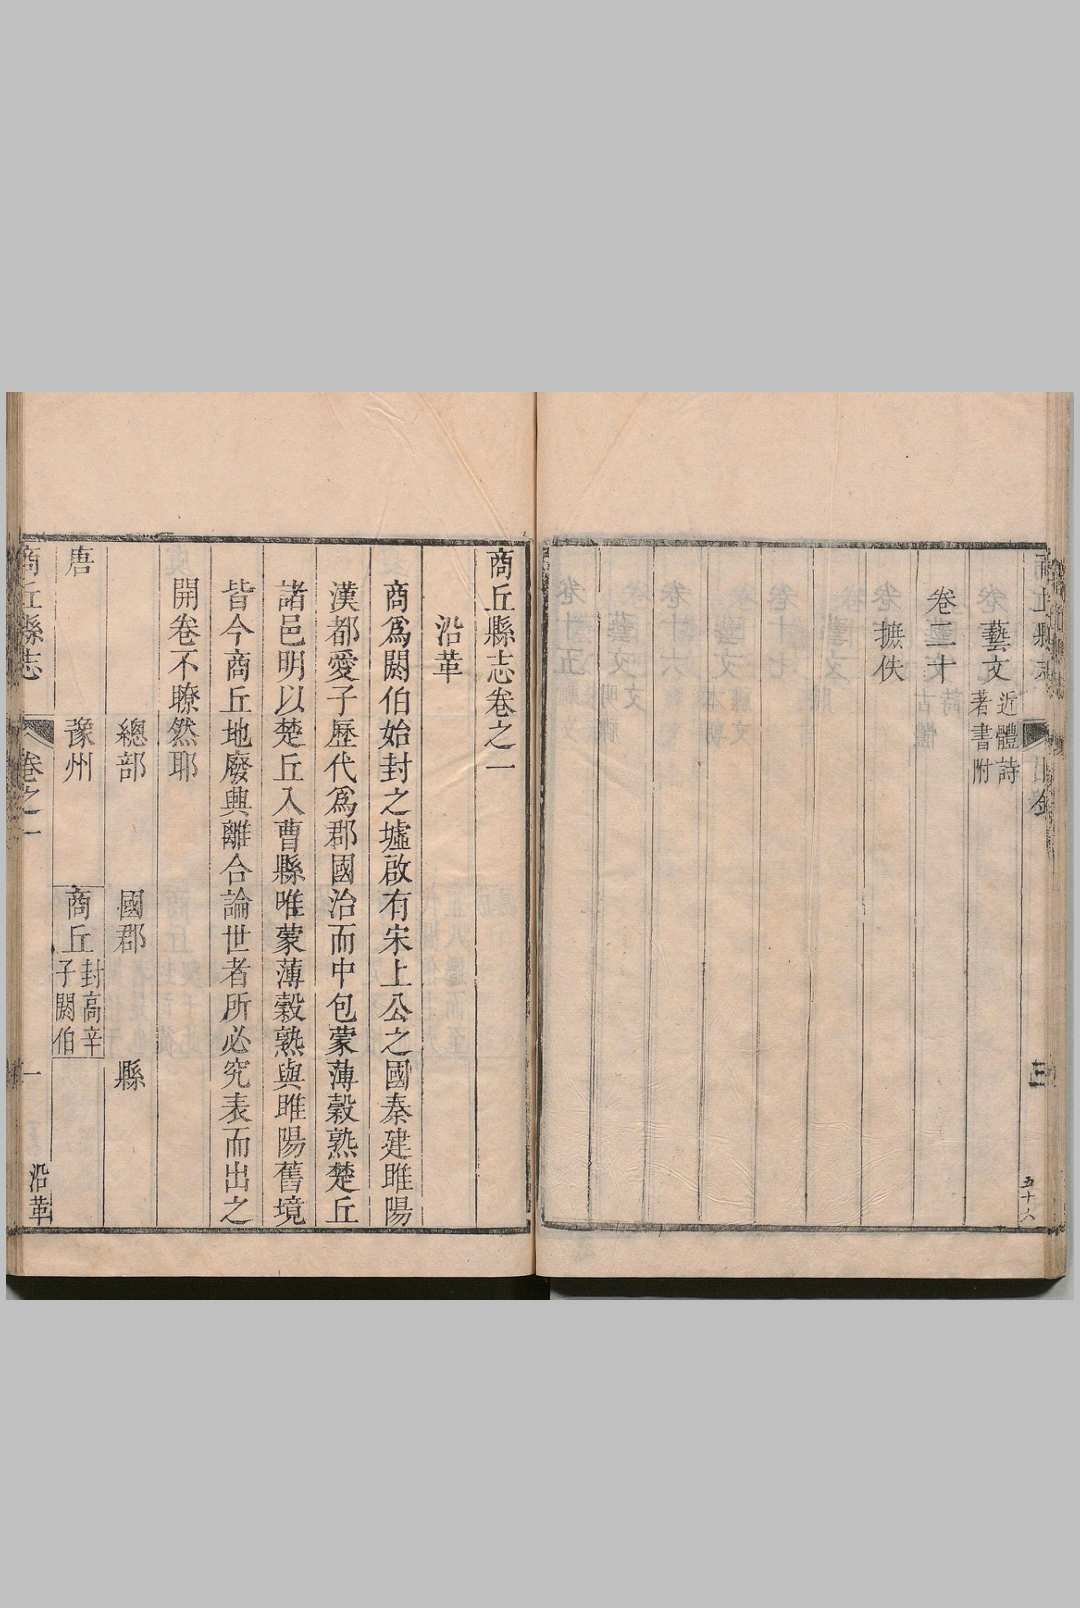 藝文近體詩
著書附
卷二十
摭佚
三
五十八
商丘縣志卷之一
沿革
商爲閼伯始封之墟啟有宋上公之國秦建睢陽
漢都愛子歷代爲郡國治而中包蒙薄穀熟楚丘
諸邑明以楚丘入曹縣唯蒙薄穀熟與睢陽舊境
皆今商丘地廢興離合論世者所必究表而出之
開卷不瞭然耶
總部 國郡 縣
唐 豫州 商丘封高辛
子閼伯
商丘縣志 卷之一 一 沿革